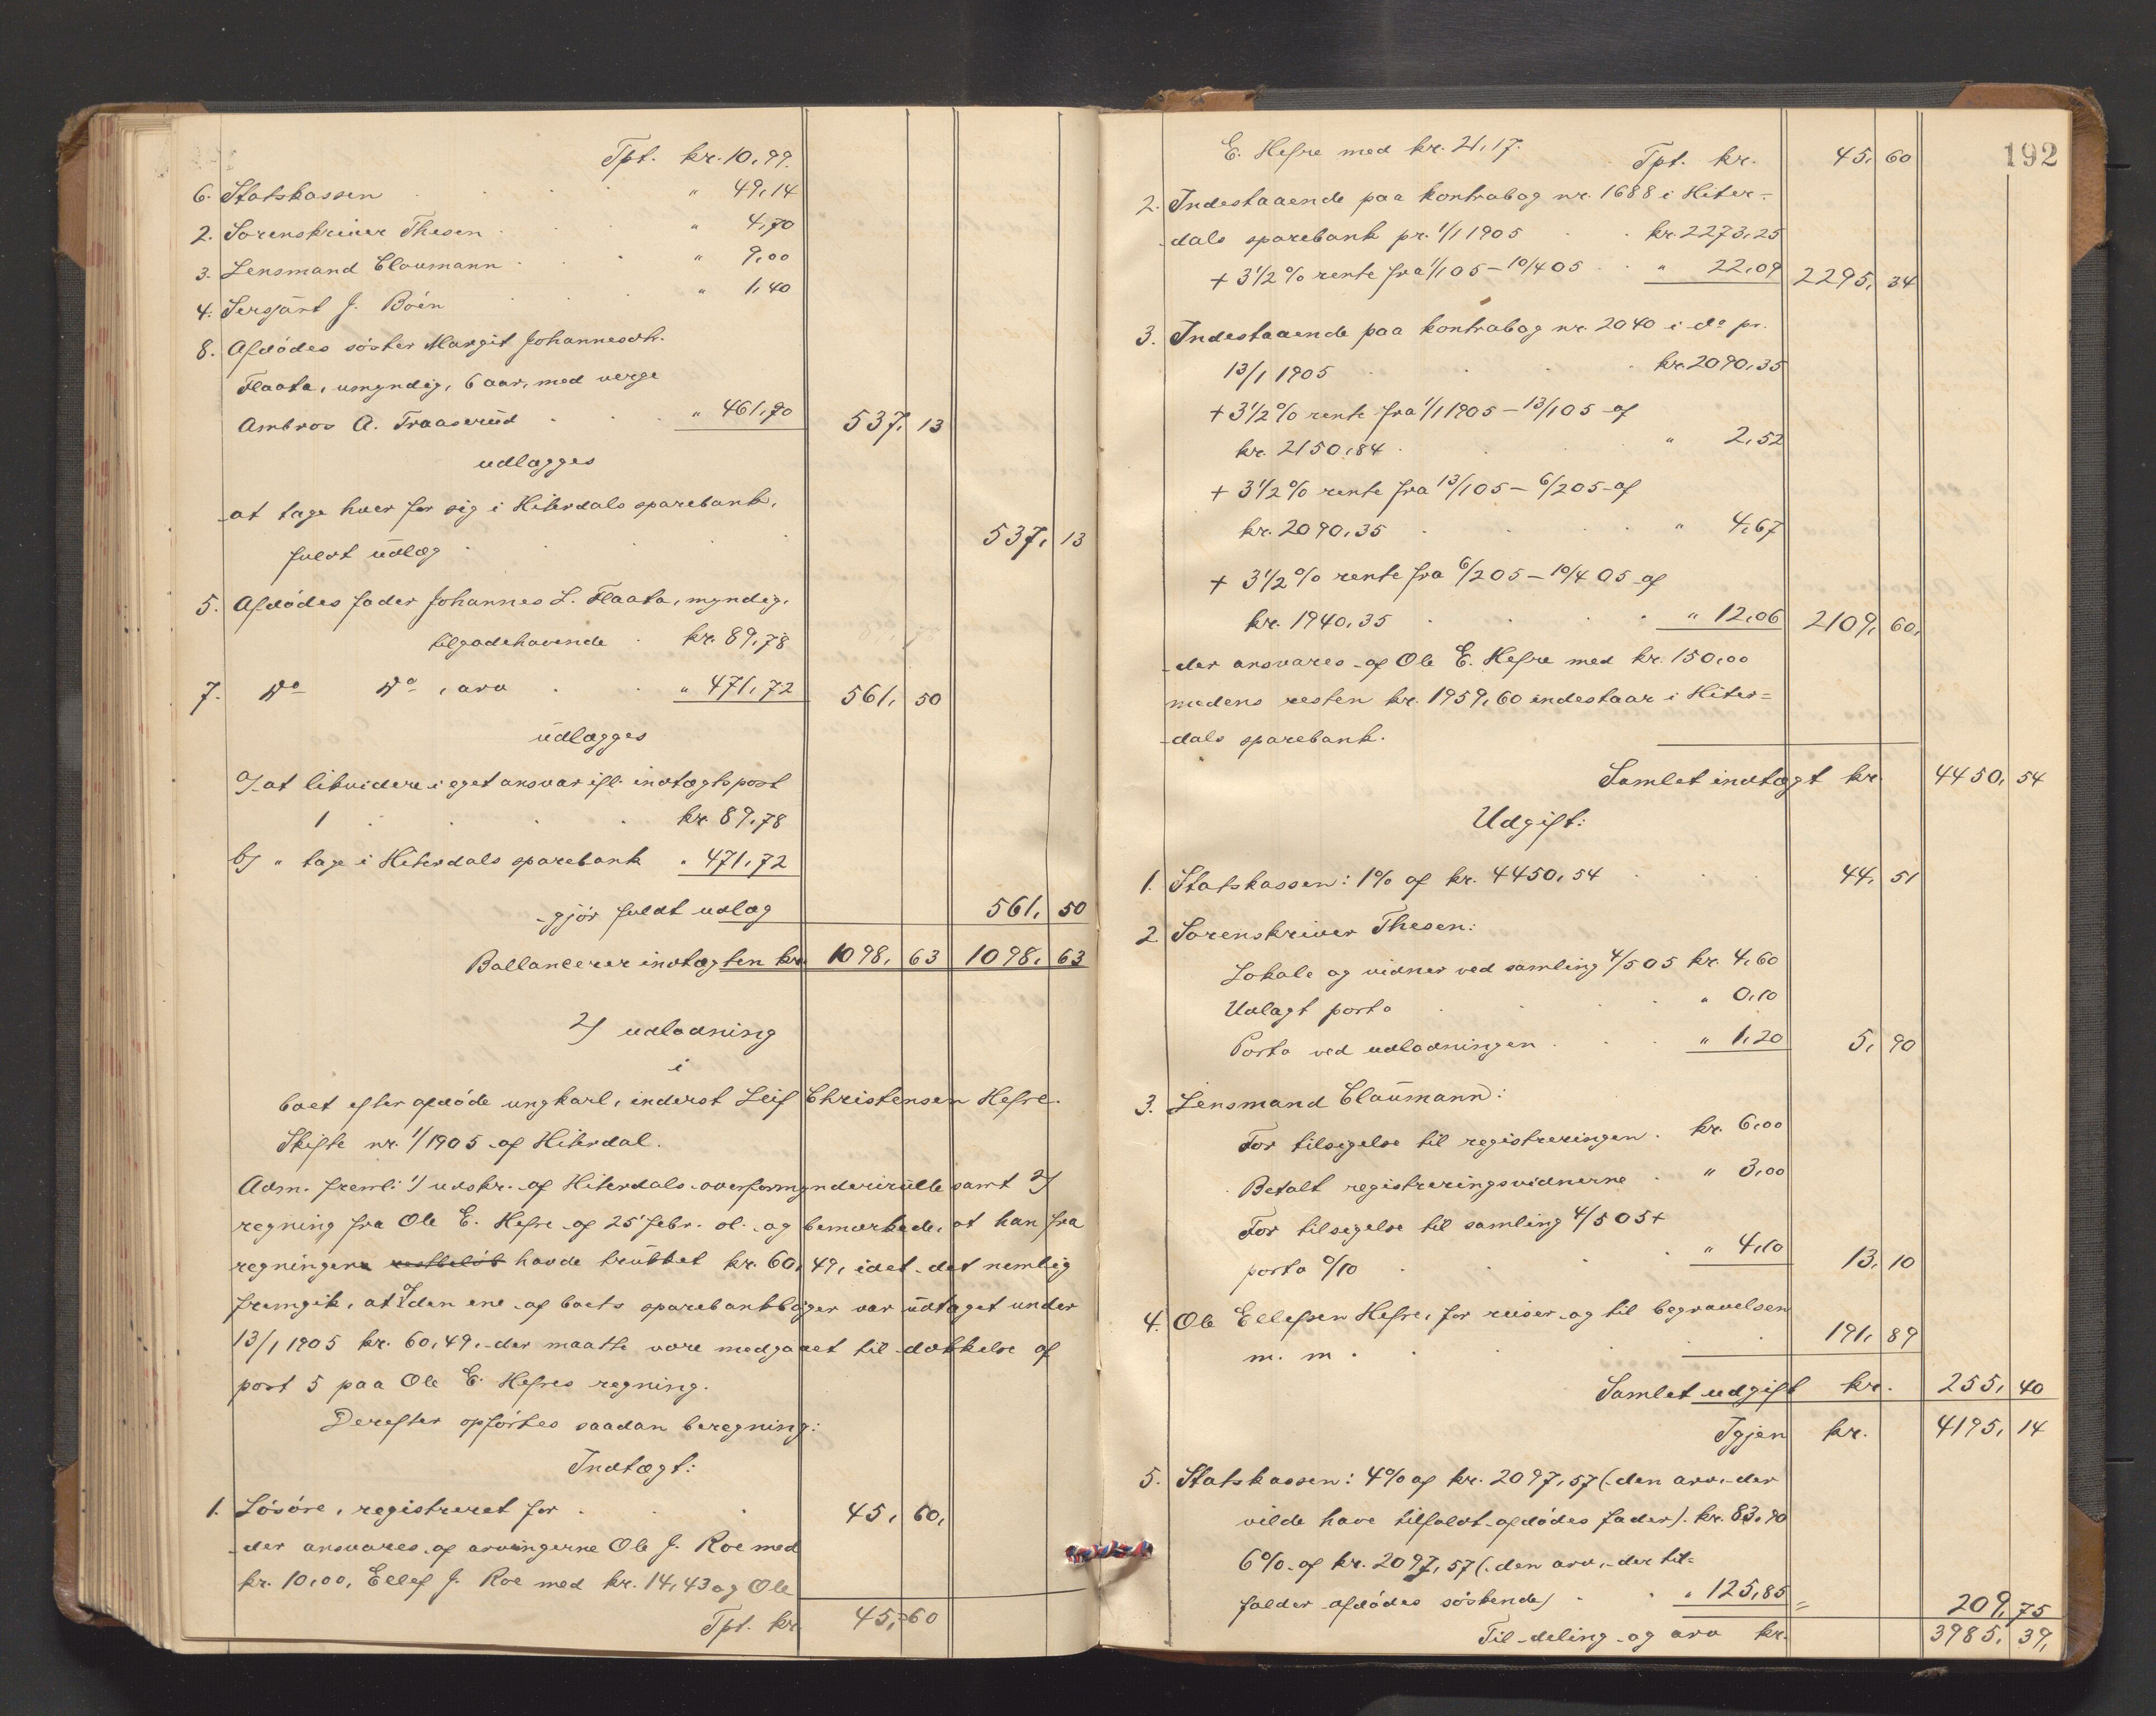 Tpt. kr. 10,99.
6. Statskassen " 49,14
2. Sorenskriver Thesen " 4,70
3. Lensmand Claumann " 9,00
4. Sersjant J. Boën " 1,40
8. Afdödes söster Margit Johannesdtr.
Flaata, umyndig, 6 aar, med verge
Ambros A. Traaserud " 461,90 537, 13
udlægges
at tage hver for sig i Hiterdals sparebank,
fuldt udlæg 537, 13
5. Afdödes fader Johannes L. Flaata, myndig,
tilgodehavende kr. 89,78
7. Do Do, arv " 471,72 561, 50
udlægges
a/ at likvidere i eget ansvar ifl. indtægtspost
1 kr. 89,78
b/ " tage i Hiterdals sparebank " 471,72
gjör fuldt udlæg 561, 50
Ballancerer indtægten kr. 1098, 63 1098, 63
2/ udlodning
i
boet efter afdöde ungkarl, inderst Leif Christensen Hefre.
Skifte nr. 1/1905 af Hiterdal.
Adm. freml: 1/ udskr. af Hiterdals overformynderirulle samt 2/
regning fra Ole E. Hefre af 25' febr. d. og bemerkede, at han fra
regningens restbelöb havde trukket kr. 60,49, idet det nemlig
fremgik, at af den ene af boets sparebankböger var udtaget under
13/1 1905 kr. 60,49, der maatte være medgaaet til dækkelse af
post 5 paa Ole E. Hefres regning.
Derefter opförtes saadan beregning:
Indtægt:
1. Lösöre, registreret for 45, 60,
der ansvares af arvingerne Ole J. Roe med
kr. 10,00, Ellef J. Roe med kr. 14,43 og Ole
Tpt. kr. 45, 60
192
E. Hefre med kr. 21,17. Tpt. kr. 45, 60
2. Indestaaende paa kontrabog nr. 1688 i Hiter-
dals sparebank pr. 1/1 1905 kr. 2273,25
+ 3 1/2 % rente fra 1/1 05 – 10/4 05 " 22,09 2295, 34
3. Indestaaende paa kontrabog nr. 2040 i do pr.
13/1 1905 kr. 2090,35
+ 3 1/2 % rente fra 1/1 1905 – 13/1 05 af
kr. 2150,84 " 2,52
+ 3 1/2 % rente fra 13/1 05 – 6/2 05 af
kr. 2090,35 " 4,67
+ 3 1/2 % rente fra 6/2 05 – 10/4 05 af
kr. 1940,35 " 12,06 2109, 60,
der ansvares af Ole E. Hefre med kr. 150,00
medens resten kr. 1959,60 indestaar i Hiter=
dals sparebank.
Samlet indtægt kr. 4450, 54
Udgift:
1. Statskassen: 1% af kr. 4450,54 44, 51
2. Sorenskriver Thesen:
Lokale og vidner ved samling 4/5 05 kr. 4,60
Udlagt porto " 0,10
Porto ved udlodningen " 1,20 5, 90
3. Lensmand Claumann:
For tilsigelse til registreringen kr. 6,00
Betalt registreringsvidnerne " 3,00
For tilsigelse til samling 4/5 05 +
porto 0/10 " 4,10 13, 10
4. Ole Ellefsen Hefre, for reiser og til begravelsen
m. m. 191, 89
Samlet udgift kr. 255, 40
Igjen kr. 4195, 14
5. Statskassen: 4% af kr. 2097,57 (den arv, der
vilde have tilfaldt afdödes fader). kr. 83,90
6% af kr. 2097,57 (den arv, der til=
falder afdödes söskende) " 125,85 = 209, 75
Til deling og arv kr. 3985, 39,